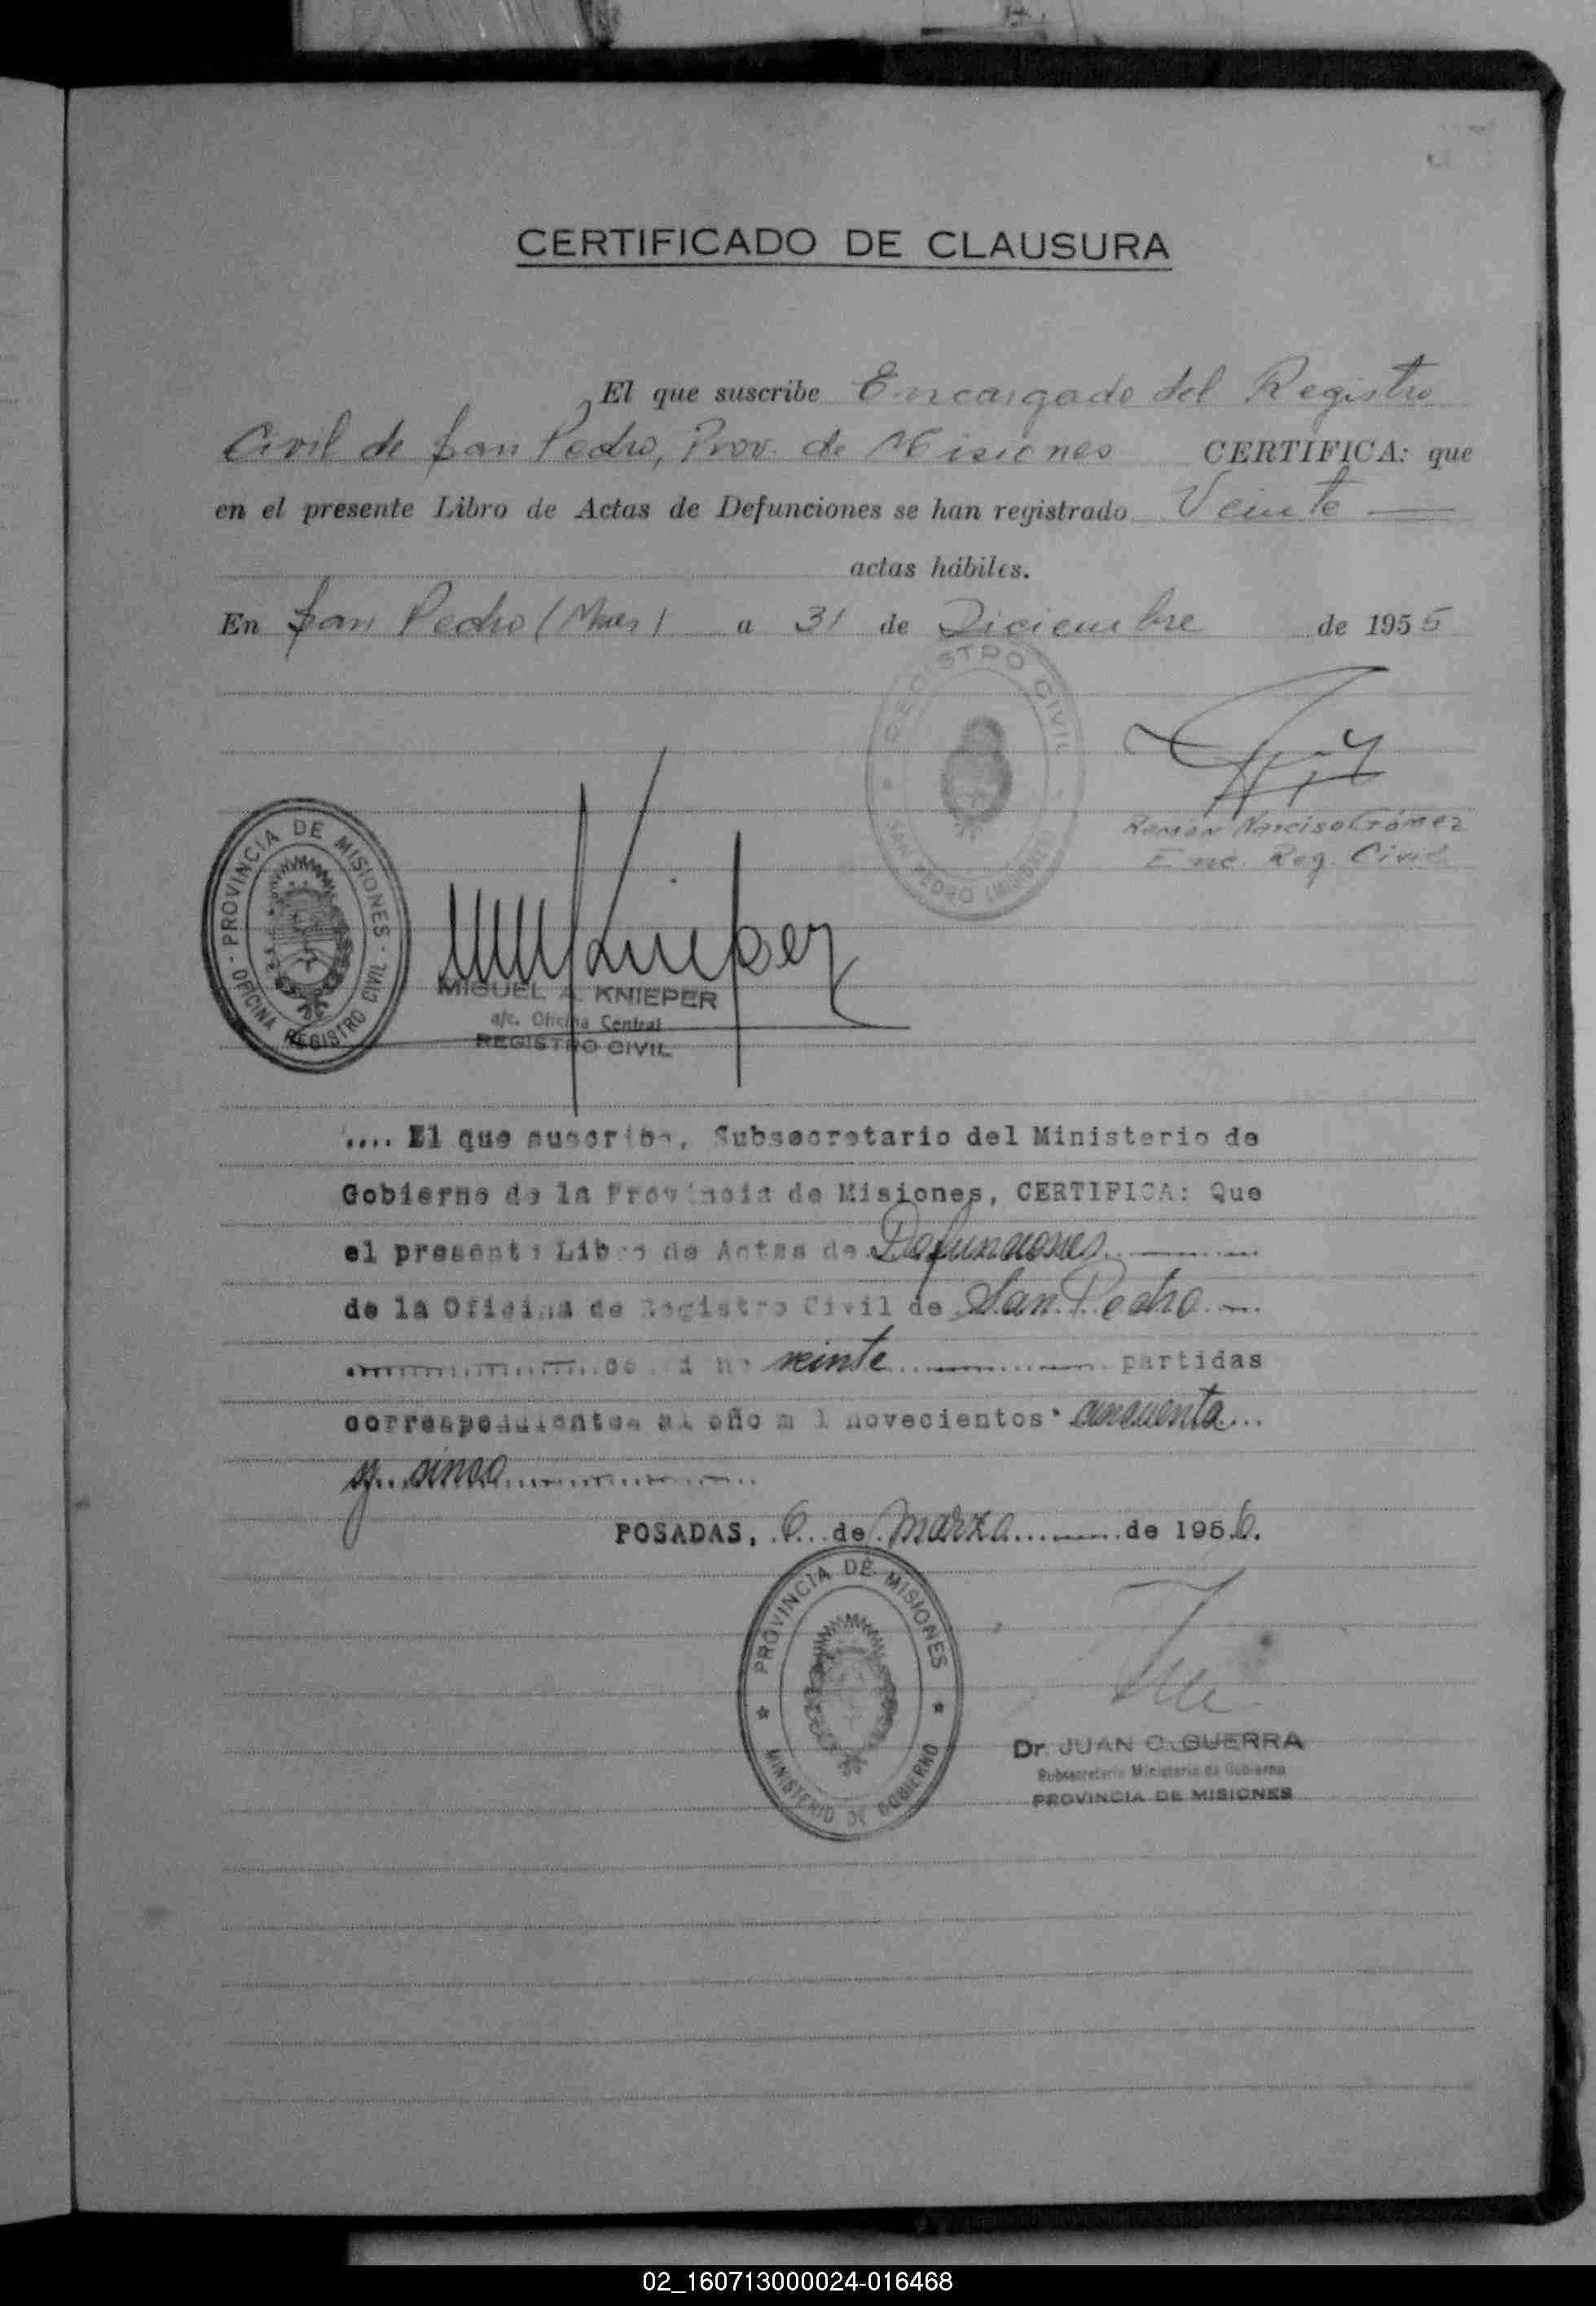 CERTIFICADO DE CLAUSURA
El que suscribe Encargado del Registro
Civil de San Pedro, Prov. de Misiones CERTIFICA: que
en el presente Libro de Actas de Defunciones se han registrado Veinte
actas hábiles.
En San Pedro (Mnes) a 31 de Diciembre de 1955
REGISTRO CIVIL
SAN PEDRO (MISIONES)
Ramón Narciso Gómez
Enc. Reg. Civil
PROVINCIA DE MISIONES
OFICINA REGISTRO CIVIL
Knieper
MIGUEL A. KNIEPER
a/c. Oficina Central
REGISTRO CIVIL
.... El que suscribe, Subsecretario del Ministerio de
Gobierno de la Provincia de Misiones, CERTIFICA: Que
el presente Libro de Actas de Defunciones
de la Oficina de Registro Civil de San Pedro
veinte partidas
correspondientes al año mil novecientos cincuenta
y cinco
POSADAS, 6 de marzo de 1956.
PROVINCIA DE MISIONES
MINISTERIO DE GOBIERNO
Dr. JUAN C. GUERRA
Subsecretario Ministerio de Gobierno
PROVINCIA DE MISIONES
02_160713000024-016468